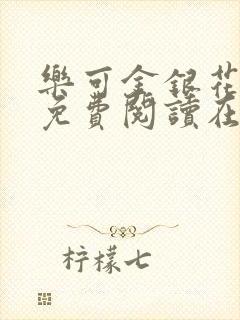 樂可金銀花
免費閱讀在
柠檬七